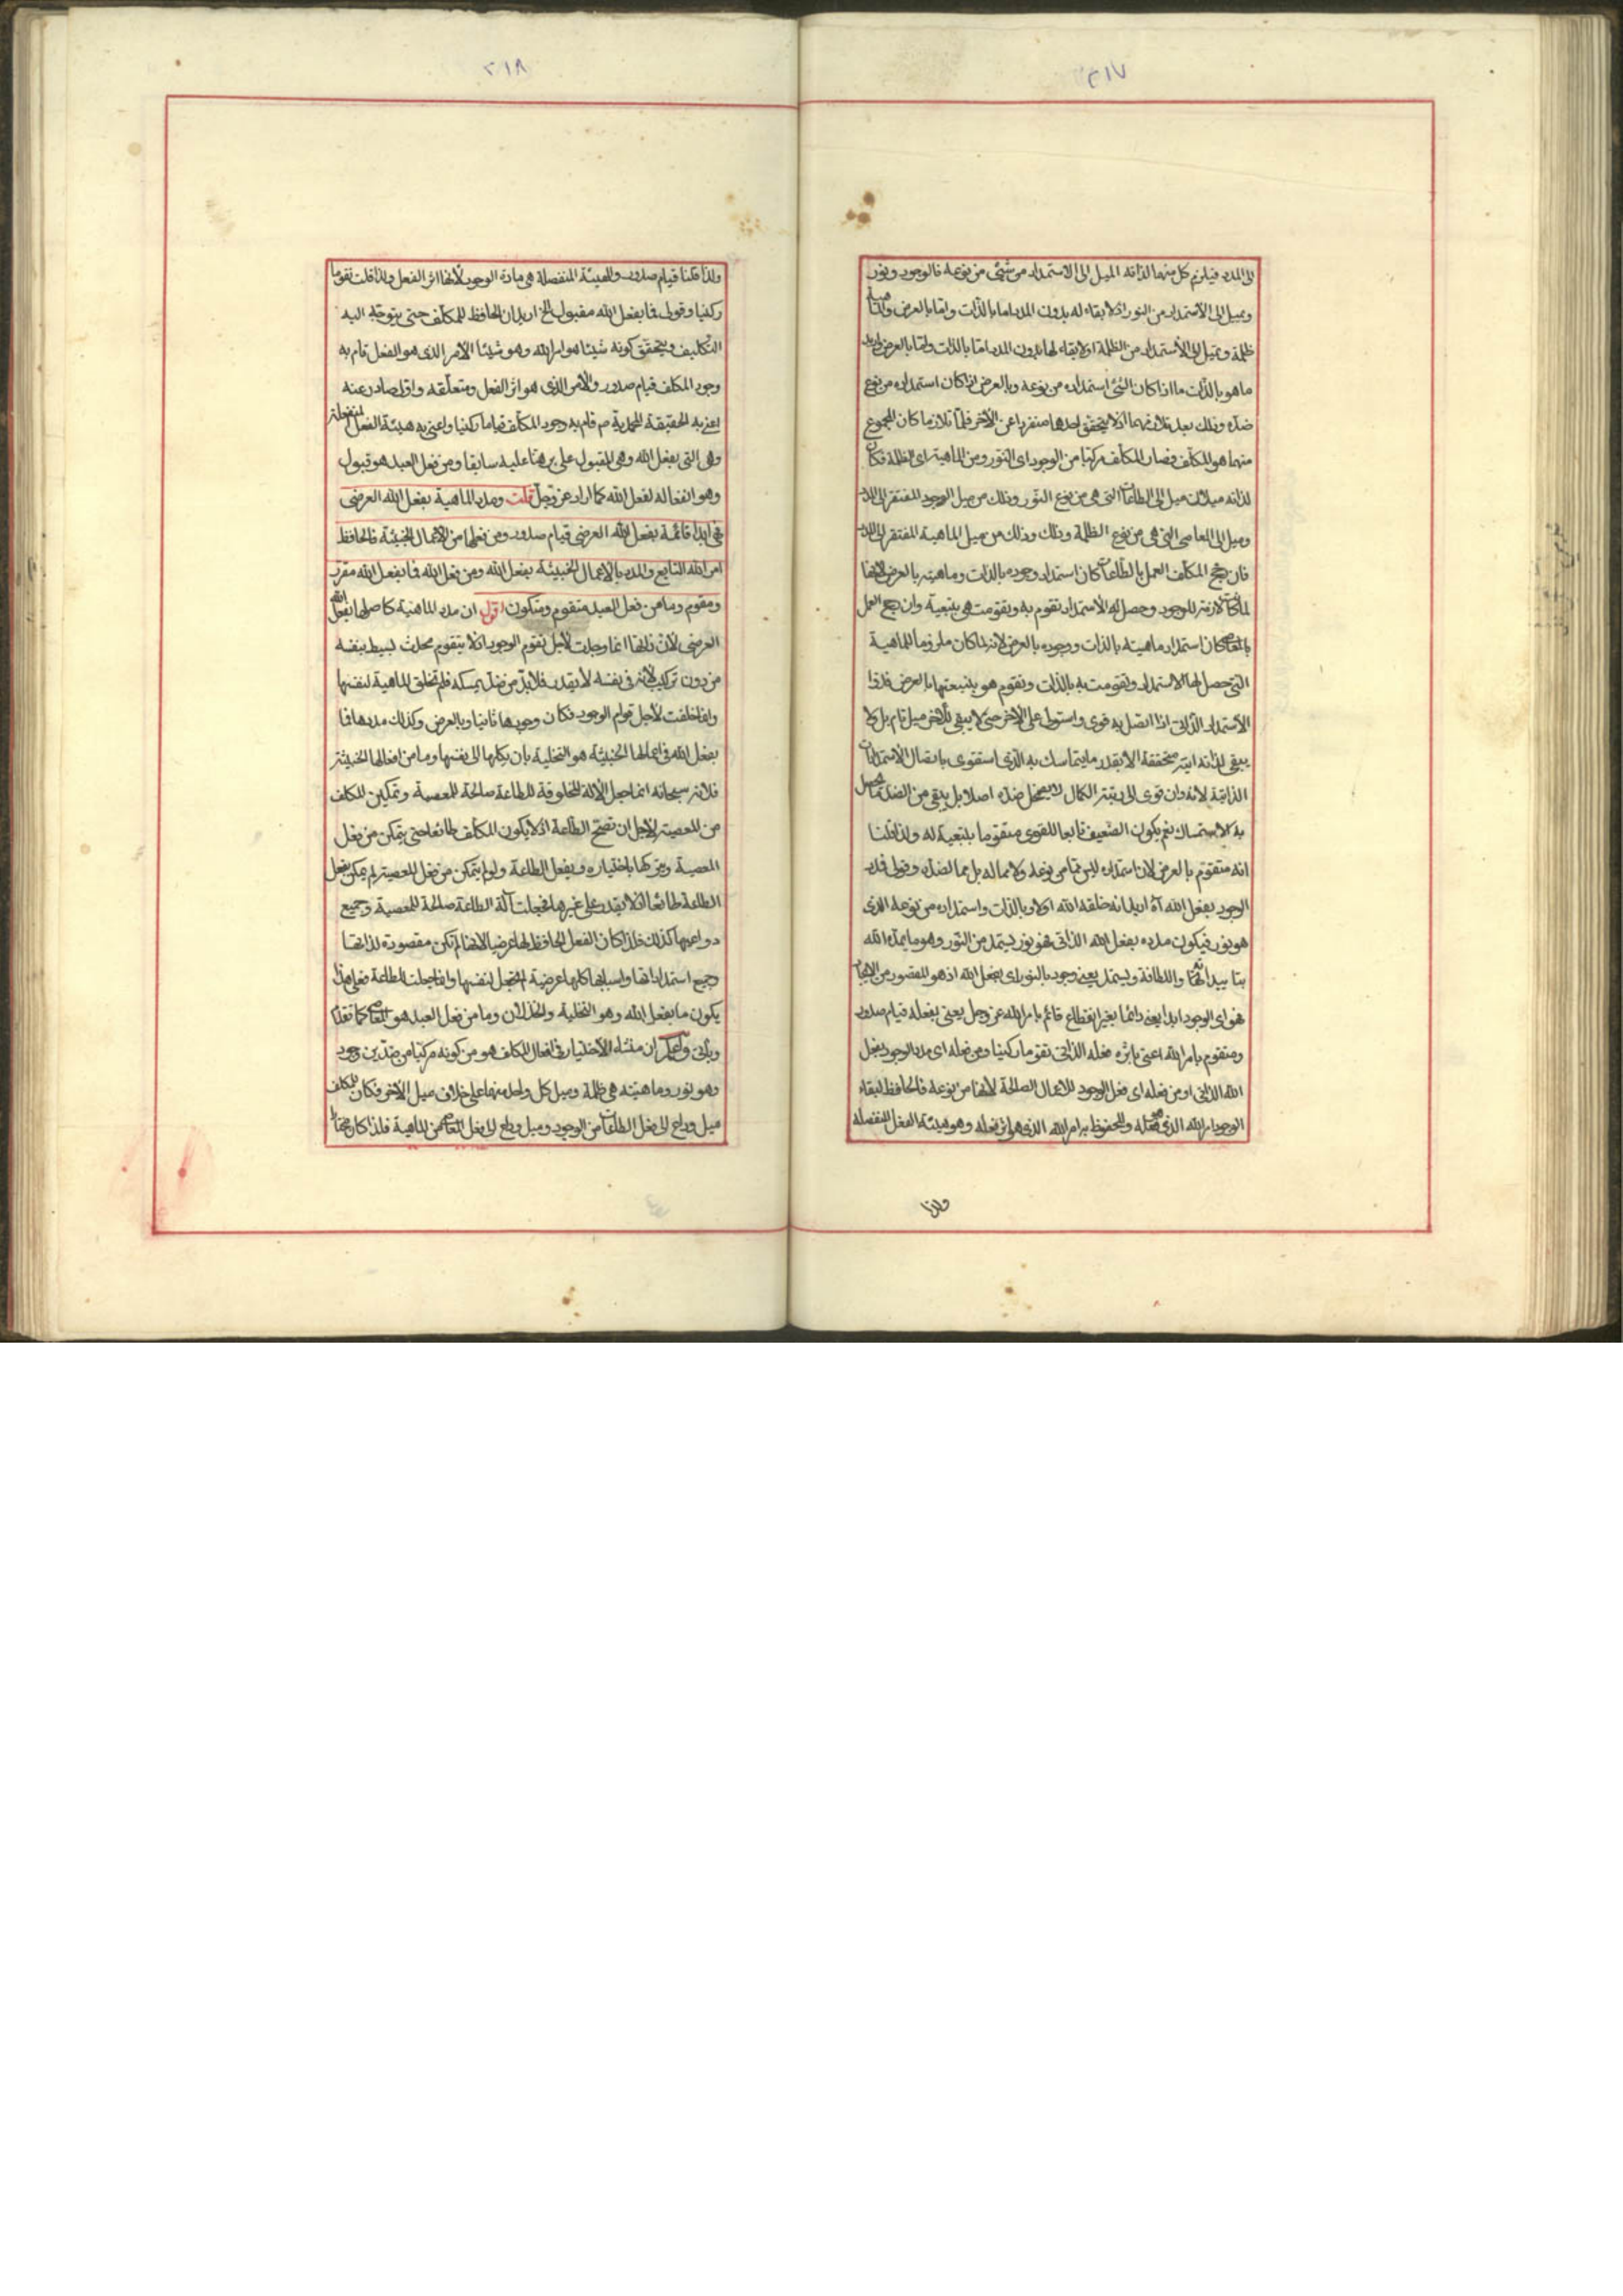 ٢١٧
الى المدد فيلزم كل منهما لذاته الميل الى الاستمداد من شئ من نوعه فالوجود ونور
ويميل الى الاستمداد من النور اذ لا بقاء له بدون المدد اما بالذات واما بالعرض
ظلمة وتميل الى الاستمداد من الظلمة اذ لا بقاء لها بدون المدد اما بالذات واما بالعرض واريد
ما هو بالذات ما اذا كان الشئ استمداده من نوعه وبالعرض اذا كان استمداده من نوع
ضده وذلك بعد تلازمهما اذ لا يتحقق احدهما منفردا عن الآخر فلما تلازما كان المجموع
منهما هو المكلف فصار المكلف مركبا من الوجود اى النور ومن الماهية اى الظلمة فكان
لذاته ميلان ميل الى الطاعات التى هى من نوع النور وذلك من ميل الوجود المفتقر الى المدد
وميل الى المعاصى التى هى من نوع الظلمة وذلك وذلك من ميل الماهية المفتقر الى المدد
فان رجح المكلف العمل بالطاعات كان استمداد وجوده بالذات وماهيته بالعرض لانها
لما كانت لازمة للوجود وحصل له الاستمداد تقوم به وتقومت هى بتبعيته وان رجح العمل
بالمعاصى كان استمداد ماهيته بالذات ووجوده بالعرض لانه لما كان ملزوما للماهية
التى حصل لها الاستمداد وتقومت به بالذات وتقوم هو بتبعيتها بالعرض فلذا
الاستمداد الذاتى اذا اتصل به قوى واستولى على الاخر حتى لا يبقى للاخر ميل تام بل لا
يبقى لذاته انية متحققة الا بقدر ما يتماسك به الذى استقوى باتصال الاستمدادات
الذاتية لانه وان قوى الى رتبة الكمال لا يضمحل ضده اصلا بل يبقى من الضد ما يحصل
به الاستمساك نعم يكون الضعيف تابعا للقوى متقوما بتبعيته له ولذا قلنا
انه متقوم بالعرض لان استمداده ليس مما من نوعه ولا مما له بل مما لضده وقولى فمدد
الوجود بفعل الله آه اريد انه خلقه الله اولا وبالذات واستمداده من نوعه الذى
هو نور فيكون مدده بفعل الله الذاتى فهو نور يستمد من النور وهو ما يمده الله
بتاييداته والطافه ويستمد يعنى وجود بالنور اى بفعل الله اذ هو المقصود من الايجاد
فهو اى الوجود ابدا يعنى دائما بغير انقطاع قائم بامر الله عز وجل يعنى بفعله قيام صدور
ومتقوم بامر الله اعنى باثره فعله الذاتى تقوما ركنيا ومن فعله اى مدد الوجود بفعل
الله الذاتى او من فعله اى فعل الوجود للاعمال الصالحة لانها من نوعه فالحافظ لبقاء
الوجود امر الله الذى هو فعله والمحفوظ به امر الله الذى هو اثر فعله وهو هيئة الفعل المنفصلة
ولذا
٢١٨
ولذا قلنا قيام صدور والهيئة المنفصلة هى مادة الوجود لانها اثر الفعل ولذا قلت تقوما
ركنيا وقولى فما بفعل الله مقبول الخ اريد ان الحافظ للمكلف حتى يتوجه اليه
التكليف ويتحقق كونه شيئا هو امر الله وهو شيئا الامر الذى هو الفعل قام به
وجود المكلف قيام صدور والامر الذى هو اثر الفعل ومتعلقه واول صادر عنه
اعنى به الحقيقة المحمدية ص قام به وجود المكلف قياما ركنيا واعنى به هيئة الفعل المنفصلة
وهى التى بفعل الله وهى المقبول على ما برهنا عليه سابقا ومن فعل العبد هو قبول
وهو انفعاله لفعل الله كما اراد عز وجل قلت ومدد الماهية بفعل الله العرضى
فهى ابدا قائمة بفعل الله العرضى قيام صدور ومن فعلها من الاعمال الخبيثة فالحافظ
امر الله التابع والمدد بالاعمال الخبيثة بفعل الله ومن فعل الله فما بفعل الله مقرر
ومقوم وما من فعل العبد متقوم ومتكون اقول ان مدد الماهية كاصلها بفعل الله
العرضى لان ذاتها انما وجدت لاجل تقوم الوجود اذ لا يتقوم محدث بسيط بنفسه
من دون تركيب لانه فى نفسه لا يقدر فلا بد من ضد يمسكه فلم تخلق الماهية لنفسها
وانما خلقت لاجل قوام الوجود فكان وجودها ثانيا وبالعرض وكذلك مددها فما
بفعل الله فى اعمالها الخبيثة هو التخلية بان يكلها الى نفسها وما من افعالها الخبيثة
فلانه سبحانه انما جعل الآلة المخلوقة للطاعة صالحة للمعصية وتمكين المكلف
من المعصية لاجل ان تصح الطاعة اذ لا يكون المكلف طائعا حتى يتمكن من فعل
المعصية ويتركها باختياره ويفعل الطاعة ولو لم يتمكن من فعل المعصية لم يمكن بفعل
الطاعة طائعا اذ لا يقدر على غيرها فجعلت آلة الطاعة صالحة للمعصية وجميع
دواعيها كذلك فلذا كان الفعل الحافظ لها عرضيا لانها لم تكن مقصودة لذاتها
وجميع استمداداتها واسبابها كلها عرضية لم تجعل لنفسها وانما جعلت للطاعة فعلى هذا
يكون ما بفعل الله وهو التخلية والخذلان وما من فعل العبد هو المعاصى كما تقدم
ويأتى واعلم ان منشاء الاختيار فى افعال المكلف هو من كونه مركبا من ضدين وجود
وهو نور وماهيته هى ظلمة وميل كل واحد منهما على خلاف ميل الآخر فكان للمكلف
ميل وداع الى فعل الطاعات من الوجود وميل وداع الى فعل المعاصى من الماهية فلذا كان مختارا